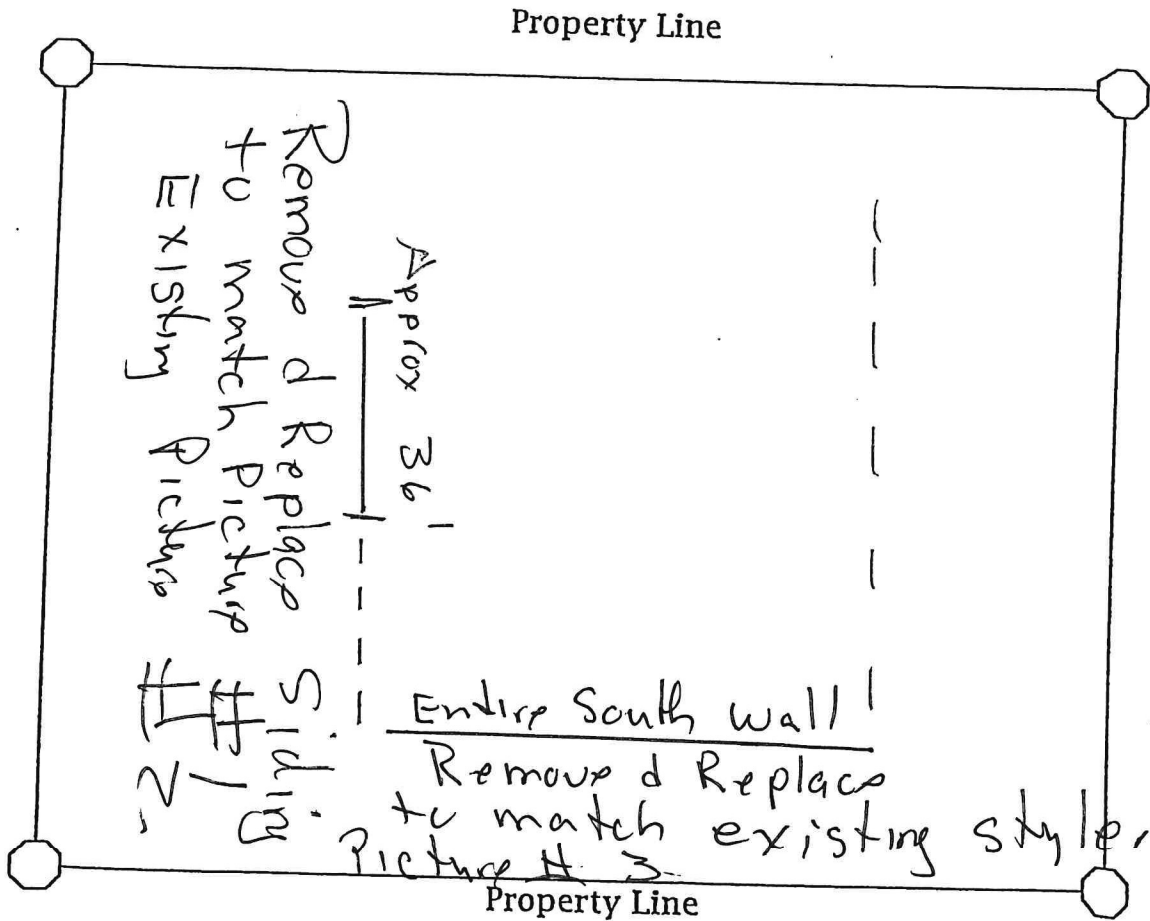 Property Line
Remove & Replace Siding
to match Picture #1
Existing Picture #2.
Approx 36'
Entire South wall
Remove & Replace
to match existing style.
Picture # 3
Property Line